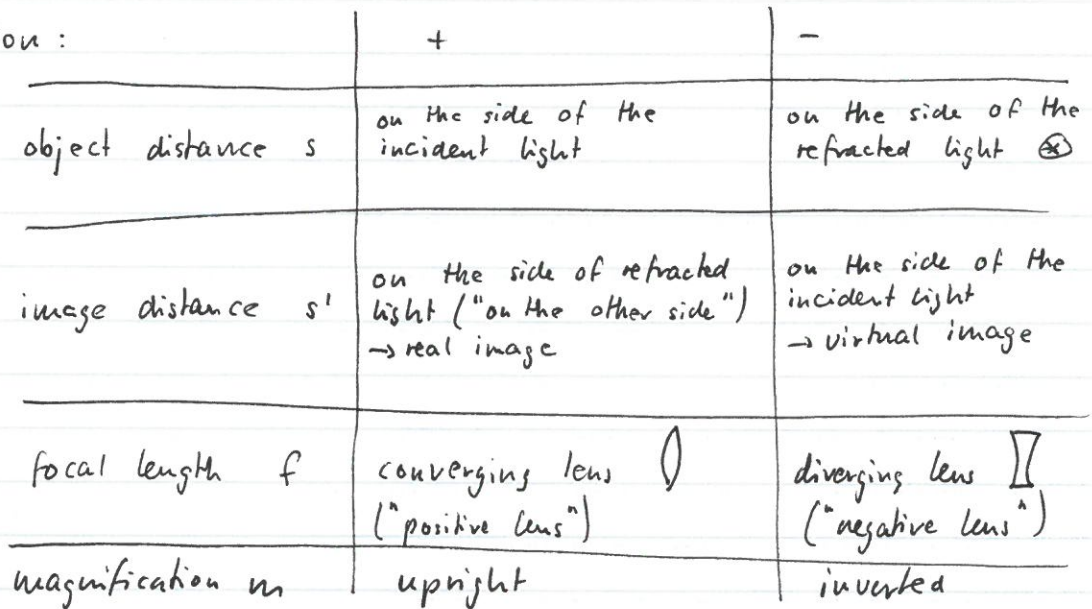 on : + -
object distance s
on the side of the
incident light
on the side of the
refracted light ⊗
image distance s'
on the side of refracted
light ("on the other side")
→ real image
on the side of the
incident light
→ virtual image
focal length f
converging lens
("positive lens")
diverging lens
("negative lens")
magnification m upright inverted